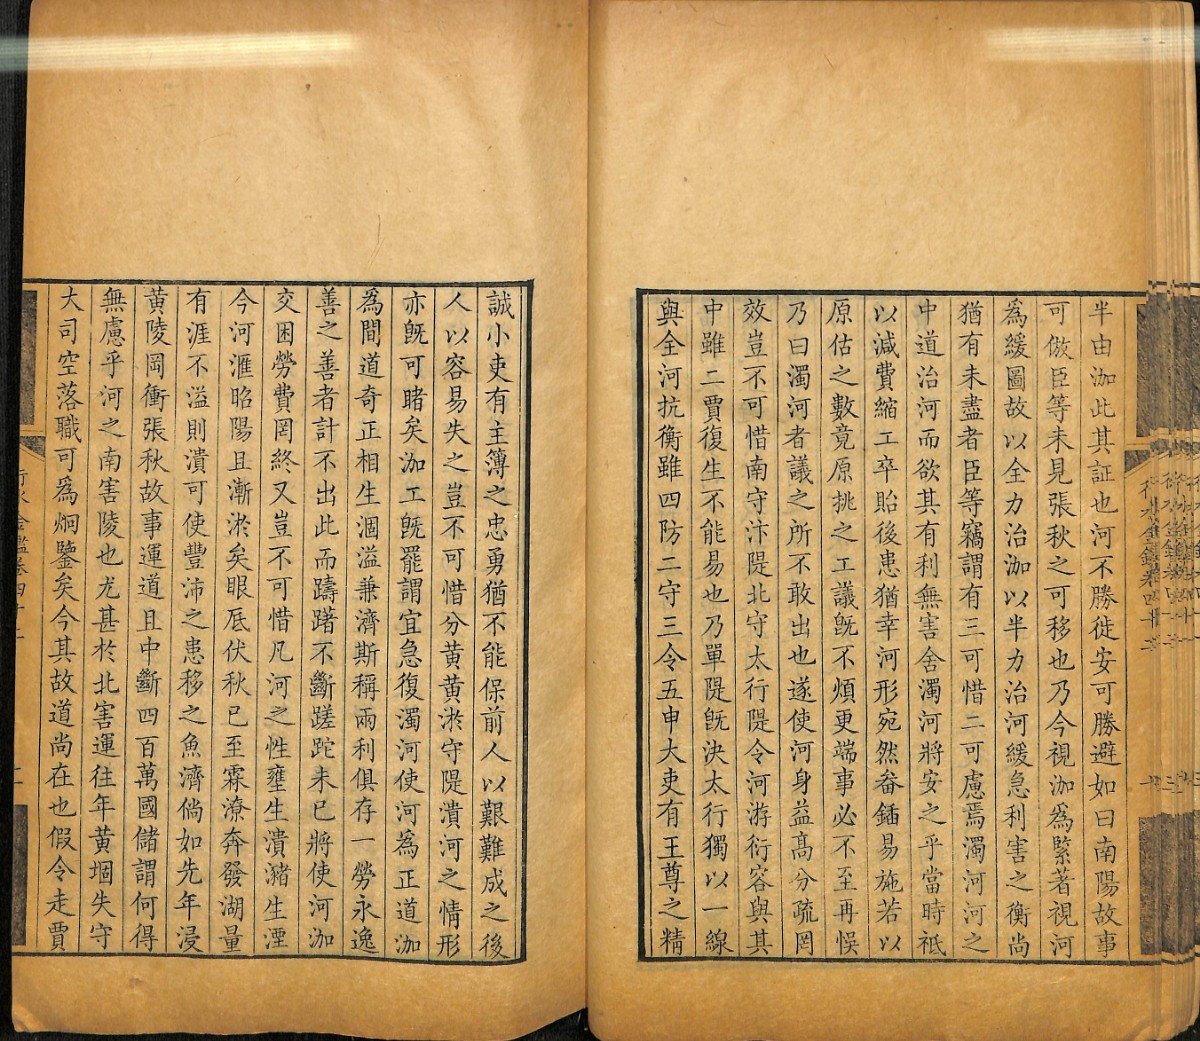 半由泇此其証也河不勝徙安可勝避如曰南陽故事
可倣臣等未見張秋之可移也乃今視泇爲緊著視河
爲緩圖故以全力治泇以半力治河緩急利害之衡尚
猶有未盡者臣等竊謂有三可惜二可慮焉濁河之
中道治河而欲其有利無害舍濁河將安之乎當時祗
以減費縮工卒貽後患猶幸河形宛然畚鍤易施若以
原估之數竟原挑之工議旣不煩更端事必不至再悞
乃曰濁河者議之所不敢出也遂使河身益高分疏罔
效豈不可惜南守汴隄北守太行隄令河游衍容與其
中雖二賈復生不能易也乃單隄旣決太行獨以一線
與全河抗衡雖四防二守三令五申大吏有王尊之精
誠小吏有主簿之忠勇猶不能保前人以艱難成之後
人以容易失之豈不可惜分黃黃淤守隄潰河之情形
亦旣可睹矣泇工旣罷謂宜急復濁河使河爲正道泇
爲間道奇正相生涸溢兼濟斯稱兩利俱存一勞永逸
善之善者計不出此而躊躇不斷蹉跎未已將使河泇
交困勞費罔終又豈不可惜凡河之性壅生潰瀦生湮
今河滙昭陽且漸淤矣眼厎伏秋已至霖潦奔發湖量
有涯不溢則潰可使豐沛之患移之魚濟倘如先年浸
黃陵岡衝張秋故事運道且中斷四百萬國儲謂何得
無慮乎河之南害陵也尤甚於北害運往年黃堌失守
大司空落職可爲炯鑒矣今其故道尚在也假令走賈
行水金鑑卷四十二